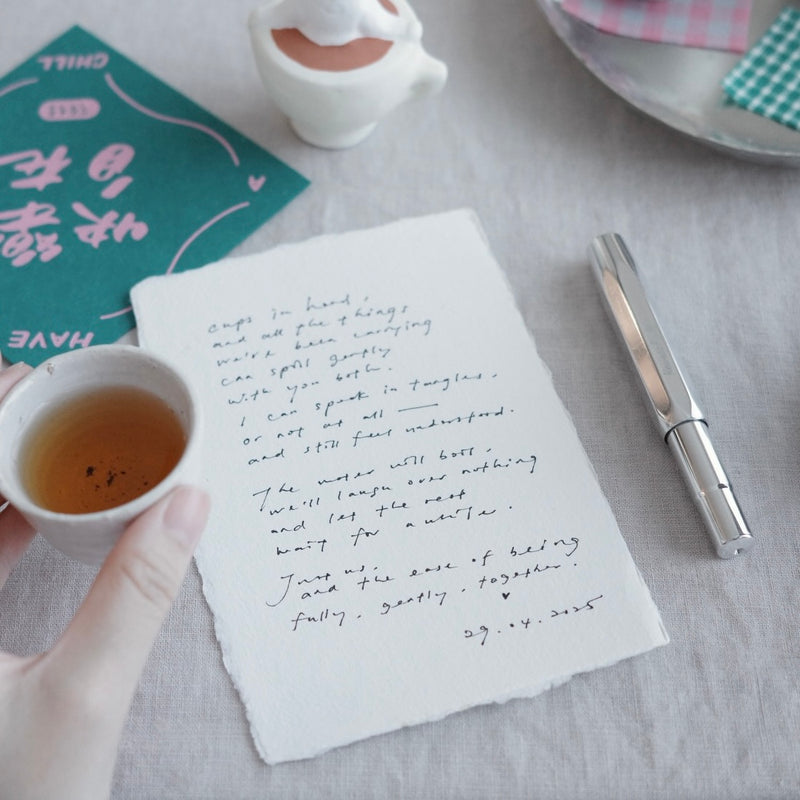 cups in hand,
and all the things
we've been carrying
can spill gently
with you both.
I can speak in tangles,
or not at all —
and still feel understood.
The water will boil,
we'll laugh over nothing
and let the rest
wait for a while.
Just us,
and the ease of being
fully, gently, together.
♥
29.04.2025
CHILL
自在
快樂
HAVE